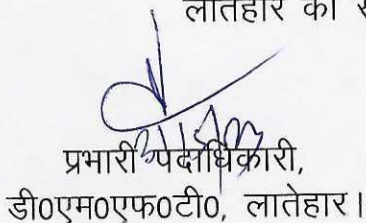 लातेहार को
प्रभारी पदाधिकारी,
डी0एम0एफ0टी0, लातेहार।